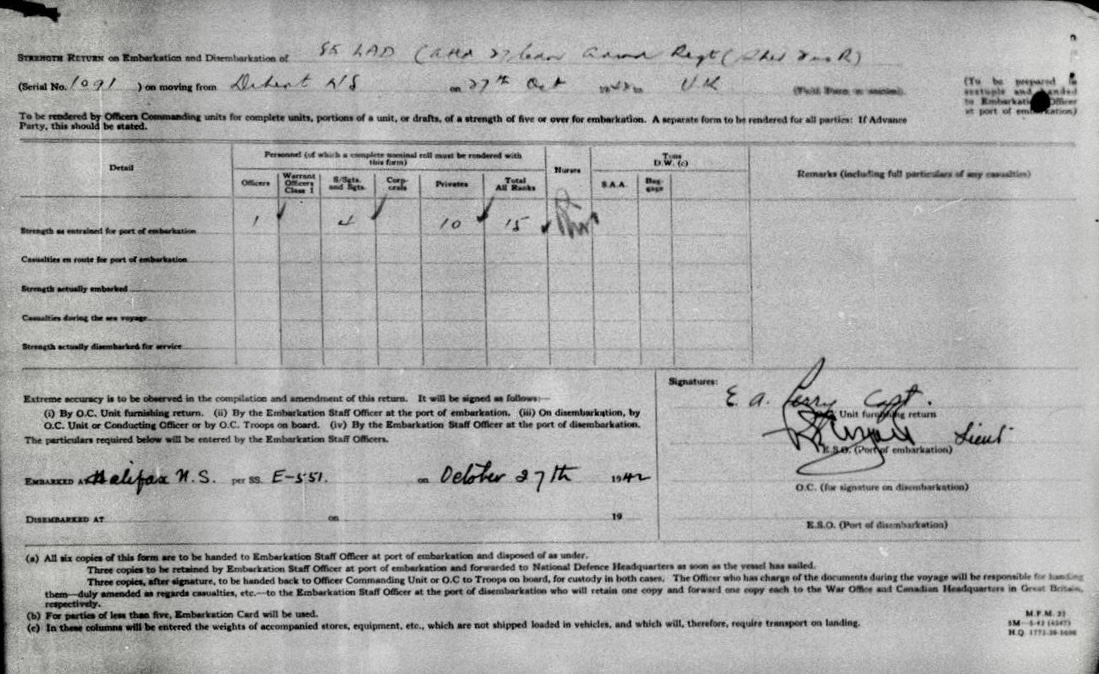 STRENGTH RETURN on Embarkation and Disembarkation of 85 LAD (Attd 27 Can Armd Regt (Sher Fus R)
(Serial No. 1091 ) on moving from Debert NS on 27th Oct 1942 to U.K
(To be prepared in sextuple and handed to Embarkation Officer at port of embarkation)
To be rendered by Officers Commanding units for complete units, portions of a unit, or drafts, of a strength of five or over for embarkation. A separate form to be rendered for all parties: If Advance
Party, this should be stated.
Detail
Personnel (of which a complete nominal roll must be rendered with
this form)
Officers
Warrant Officers Class I
S/Sgts. and Sgts.
Corporals
Privates
Total All Ranks
Nurses
Tons
D.W. (c)
S.A.A.
Baggage
Remarks (including full particulars of any casualties)
Strength as entrained for port of embarkation 1 4 10 15
Casualties en route for port of embarkation
Strength actually embarked
Casualties during the sea voyage
Strength actually disembarked for service
Extreme accuracy is to be observed in the compilation and amendment of this return. It will be signed as follows:—
(i) By O.C. Unit furnishing return. (ii) By the Embarkation Staff Officer at the port of embarkation. (iii) On disembarkation, by
O.C. Unit or Conducting Officer or by O.C. Troops on board. (iv) By the Embarkation Staff Officer at the port of disembarkation.
The particulars required below will be entered by the Embarkation Staff Officers.
EMBARKED AT Halifax N.S. per SS. E-551. on October 27th 1942
DISEMBARKED AT on 19
Signatures:
E. A. Perry Capt.
Unit furnishing return
Lieut
E.S.O. (Port of embarkation)
O.C. (for signature on disembarkation)
E.S.O. (Port of disembarkation)
(a) All six copies of this form are to be handed to Embarkation Staff Officer at port of embarkation and disposed of as under.
Three copies to be retained by Embarkation Staff Officer at port of embarkation and forwarded to National Defence Headquarters as soon as the vessel has sailed.
Three copies, after signature, to be handed back to Officer Commanding Unit or O.C to Troops on board, for custody in both cases. The Officer who has charge of the documents during the voyage will be responsible for handing
them—duly amended as regards casualties, etc.—to the Embarkation Staff Officer at the port of disembarkation who will retain one copy and forward one copy each to the War Office and Canadian Headquarters in Great Britain,
respectively.
(b) For parties of less than five, Embarkation Card will be used.
(c) In these columns will be entered the weights of accompanied stores, equipment, etc., which are not shipped loaded in vehicles, and which will, therefore, require transport on landing.
M.F.M. 22
H.Q. 1772-39-1606